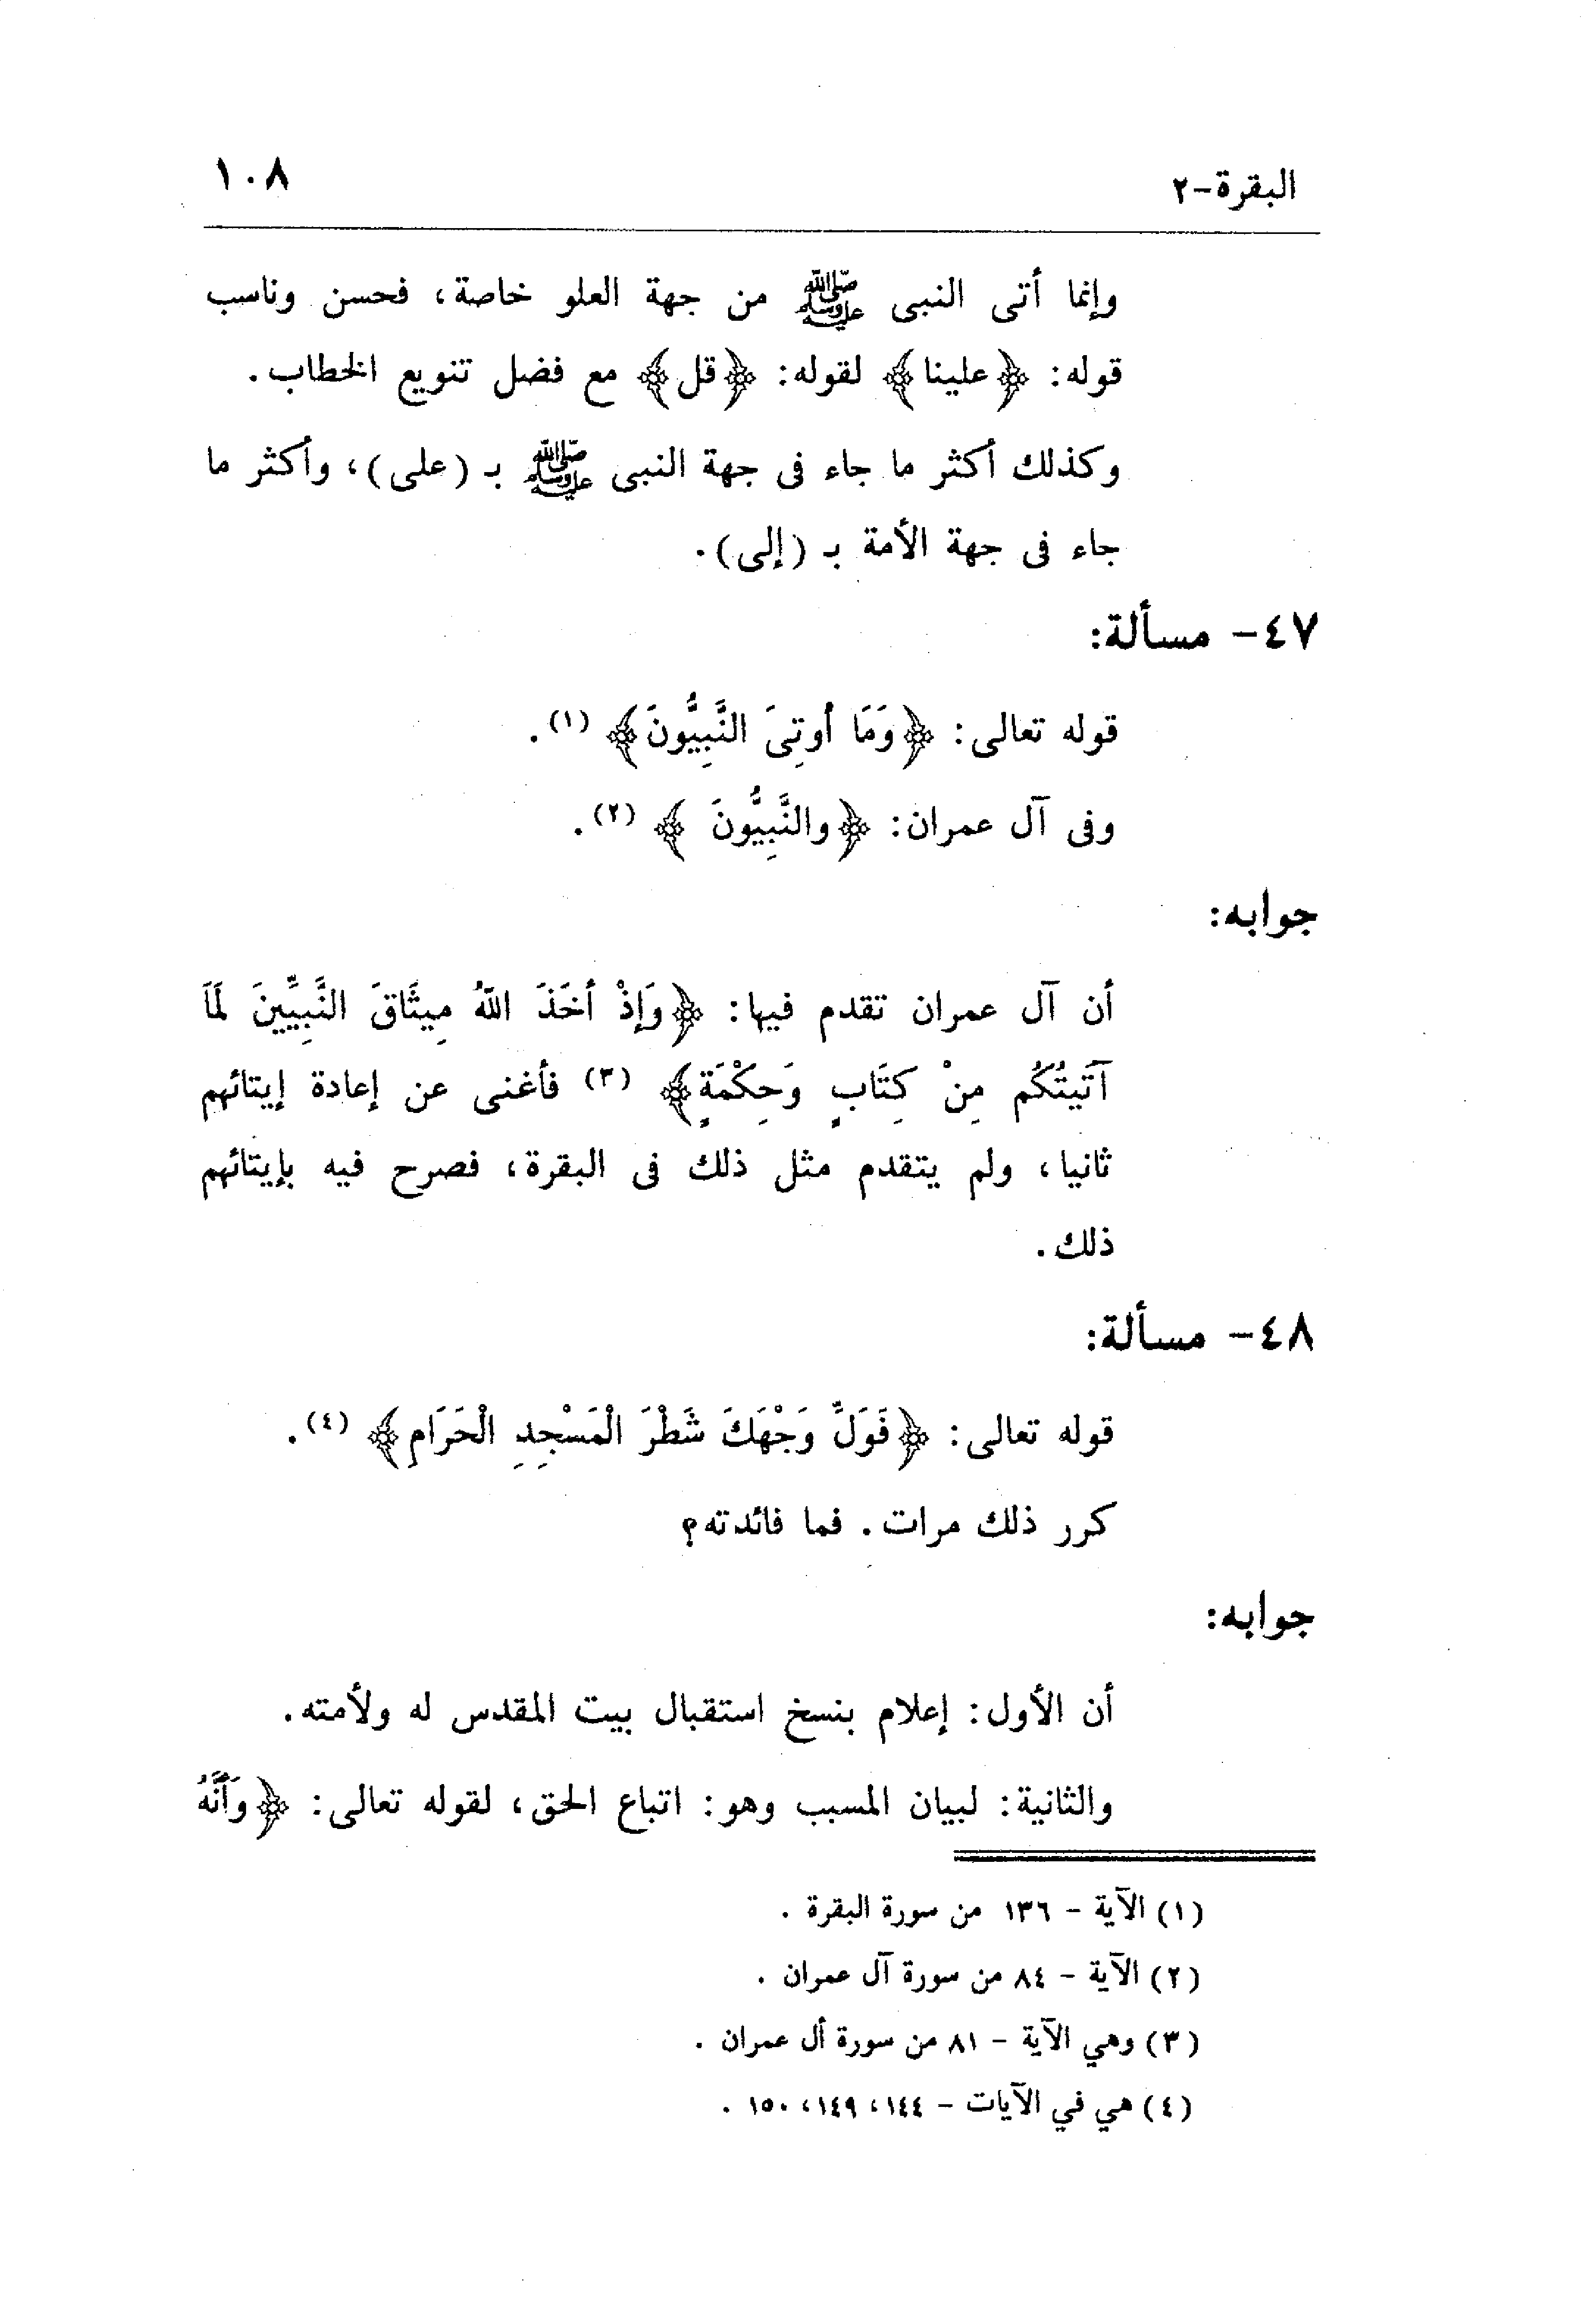 البقرة-٢ ١٠٨
وإنما أتى النبى ﷺ من جهة العلو خاصة، فحسن وناسب
قوله: ﴿علينا﴾ لقوله: ﴿قل﴾ مع فضل تنويع الخطاب.
وكذلك أكثر ما جاء فى جهة النبى ﷺ بـ (على)، وأكثر ما
جاء فى جهة الأمة بـ (إلى).
٤٧- مسألة:
قوله تعالى: ﴿وَمَا أُوتِىَ النَّبِيُّونَ﴾ (١).
وفى آل عمران: ﴿والنَّبِيُّونَ ﴾ (٢).
جوابه:
أن آل عمران تقدم فيها: ﴿وَإِذْ أَخَذَ اللهُ مِيثَاقَ النَّبِيِّينَ لَمَا
آتَيتُكُم مِنْ كِتَابٍ وَحِكْمَةٍ﴾ (٣) فأغنى عن إعادة إيتائهم
ثانيا، ولم يتقدم مثل ذلك فى البقرة، فصرح فيه بإيتائهم
ذلك.
٤٨- مسألة:
قوله تعالى: ﴿فَوَلِّ وَجْهَكَ شَطْرَ الْمَسْجِدِ الْحَرَامِ﴾ (٤).
كرر ذلك مرات. فما فائدته؟
جوابه:
أن الأول: إعلام بنسخ استقبال بيت المقدس له ولأمته.
والثانية: لبيان المسبب وهو: اتباع الحق، لقوله تعالى: ﴿وَأَنَّهُ
(١) الآية - ١٣٦ من سورة البقرة .
(٢) الآية - ٨٤ من سورة آل عمران .
(٣) وهي الآية - ٨١ من سورة أل عمران .
(٤) هي في الآيات - ١٤٤، ١٤٩، ١٥٠ .